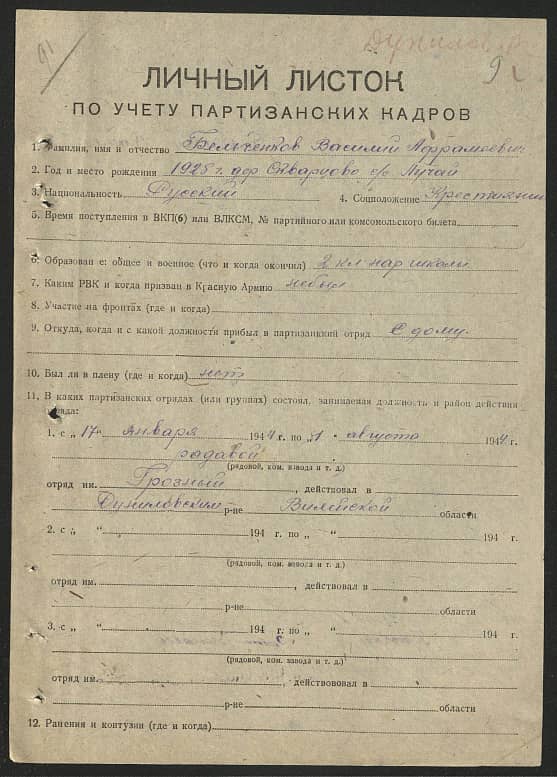 91
Дунилов.
9
ЛИЧНЫЙ ЛИСТОК
ПО УЧЕТУ ПАРТИЗАНСКИХ КАДРОВ
1. Фамилия, имя и отчество Бельченков Василий Абрамович
2. Год и место рождения 1925 г. дер Скварцово с/с Лучай
3. Национальность Русский 4. Соцположение Крестянин
5. Время поступления в ВКП(б) или ВЛКСМ, № партийного или комсомольского билета
6. Образован е: общее и военное (что и когда окончил) 2 кл нар школи
7. Каким РВК и когда призван в Красную Армию небыл
8. Участие на фронтах (где и когда)
9. Откуда, когда и с какой должности прибыл в партизанский отряд С дому
10. Был ли в плену (где и когда) нет
11. В каких партизанских отрядах (или группах) состоял, занимаемая должность и район действия
отряда:
1. с „17“ января 1944 г. по „1“ августа 1944 г.
радавой
(рядовой, ком. взвода и т. д.)
отряд им. Грозный, действовал в
Дуниловским р-не Вилейской области
2. с „ “ 194 г. по „ “ 194 г.
(рядовой, ком. взвода и т. д.)
отряд им. , действовал в
р-не области
3. с „ “ 194 г. по „ “ 194 г.
(рядовой, ком. взвода и т. д.)
отряд им. , действововал в
р-не области
12. Ранения и контузии (где и когда)